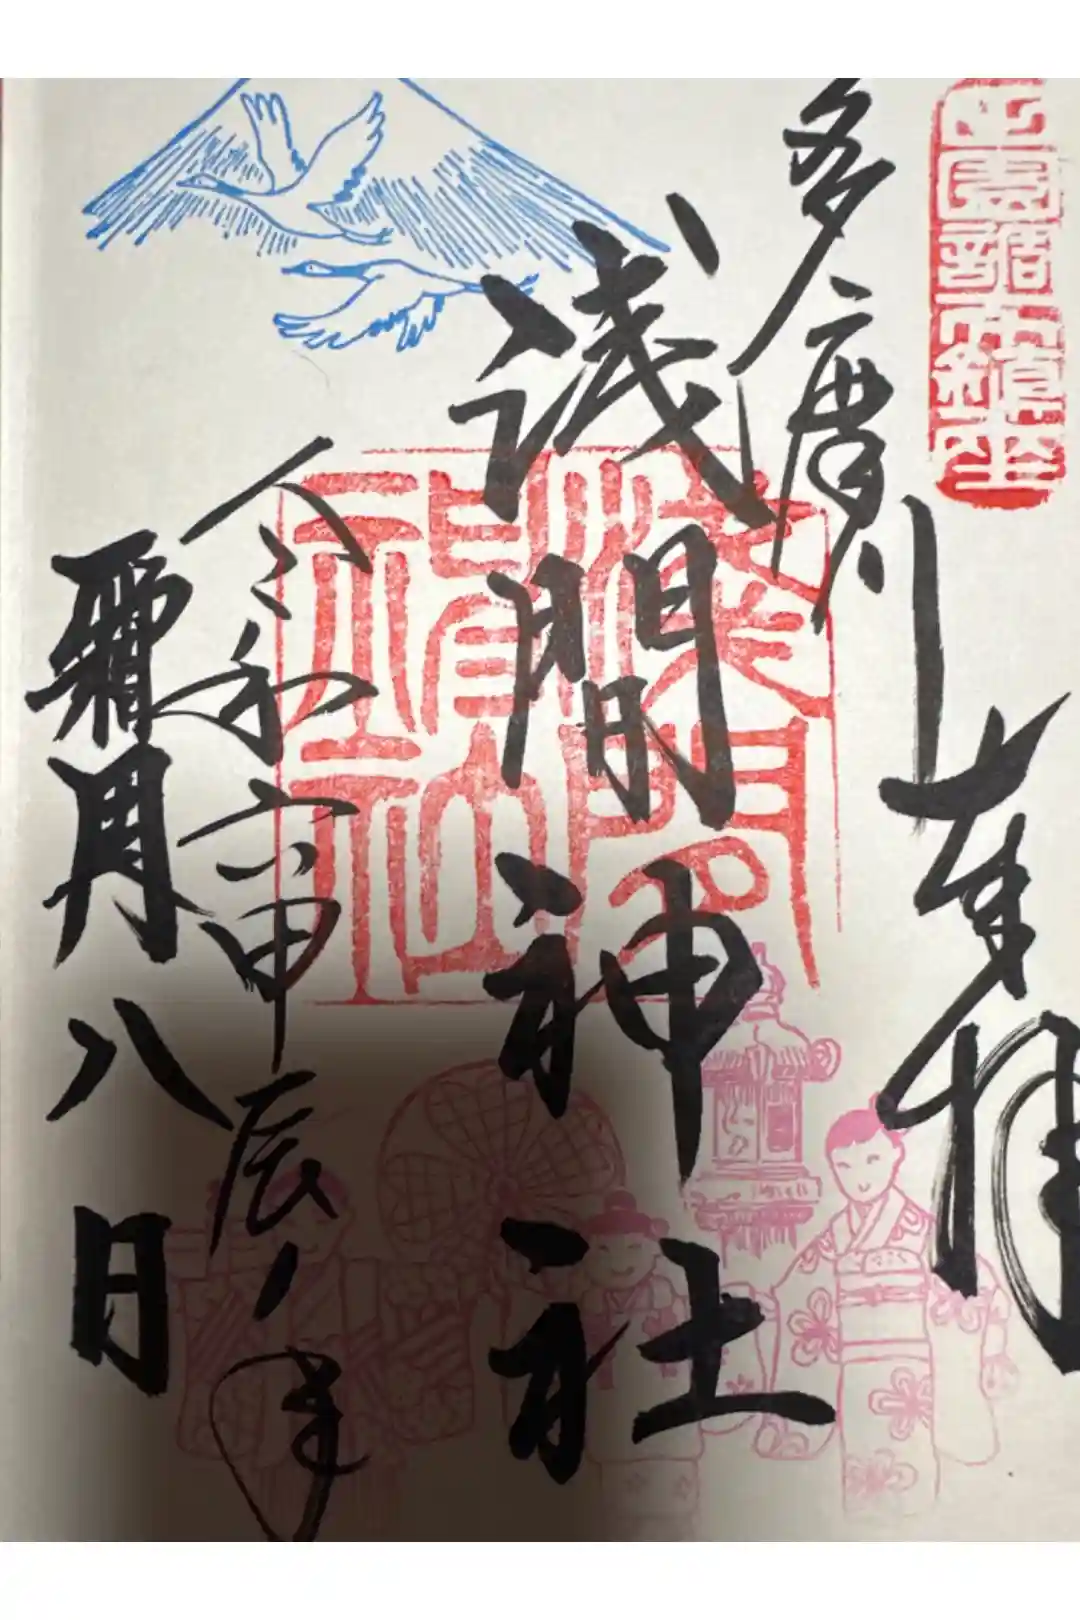 田園調布鎮座
奉拝
多摩川
浅間神社
令和六甲辰ノ年
霜月八日